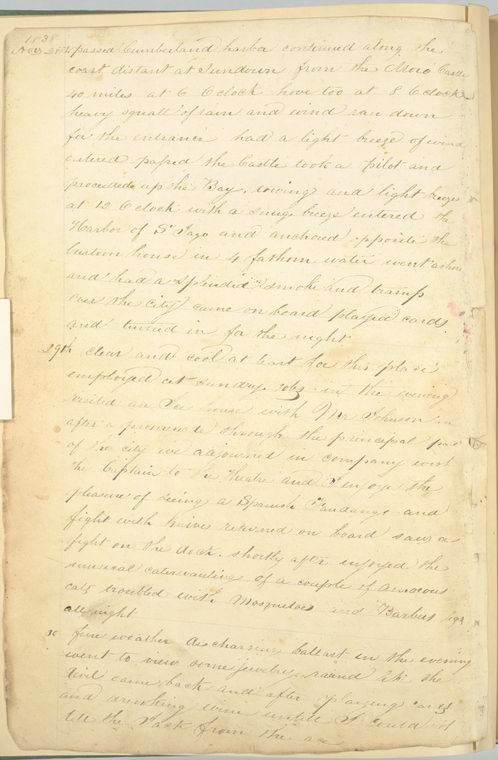 1838
Nov 28th passed Cumberland harbor continued along the
coast distant at Sundown from the Moro Castle
40 miles at 6 O clock hove too at 8 O clock
heavy squall of rain and wind ran down
for the entrance had a light breeze of wind
entered passed the Castle took a pilot and
proceeded up the Bay, towing and light breezes
at 12 O clock with a snug breeze entered the
Harbor of St Jago and anchored opposite the
Custom house in 4 fathom water went ashore
and had a splendid smoke and tramp
over the City came on board played cards
and turned in for the night
29th clear and cool at least for this place
employed at sundry jobs in the evening
visited an Ice house with Mr Johnson
after a promenade through the principal part
of the city we adjourned in company with
the Captain to the Theatre and enjoyed the
pleasure of seeing a Spanish Fandango and
fight with knives returned on board saw a
fight on the deck. shortly after enjoyed the
musical caterwauling of a couple of amorous
cats troubled with Mosquitoes and
all night
30 fine weather discharging ballast in the evening
went to view some jewelry, rained like the
devil came back and after playing cards
and drinking wine untill I could not
tell the Jack from the ace